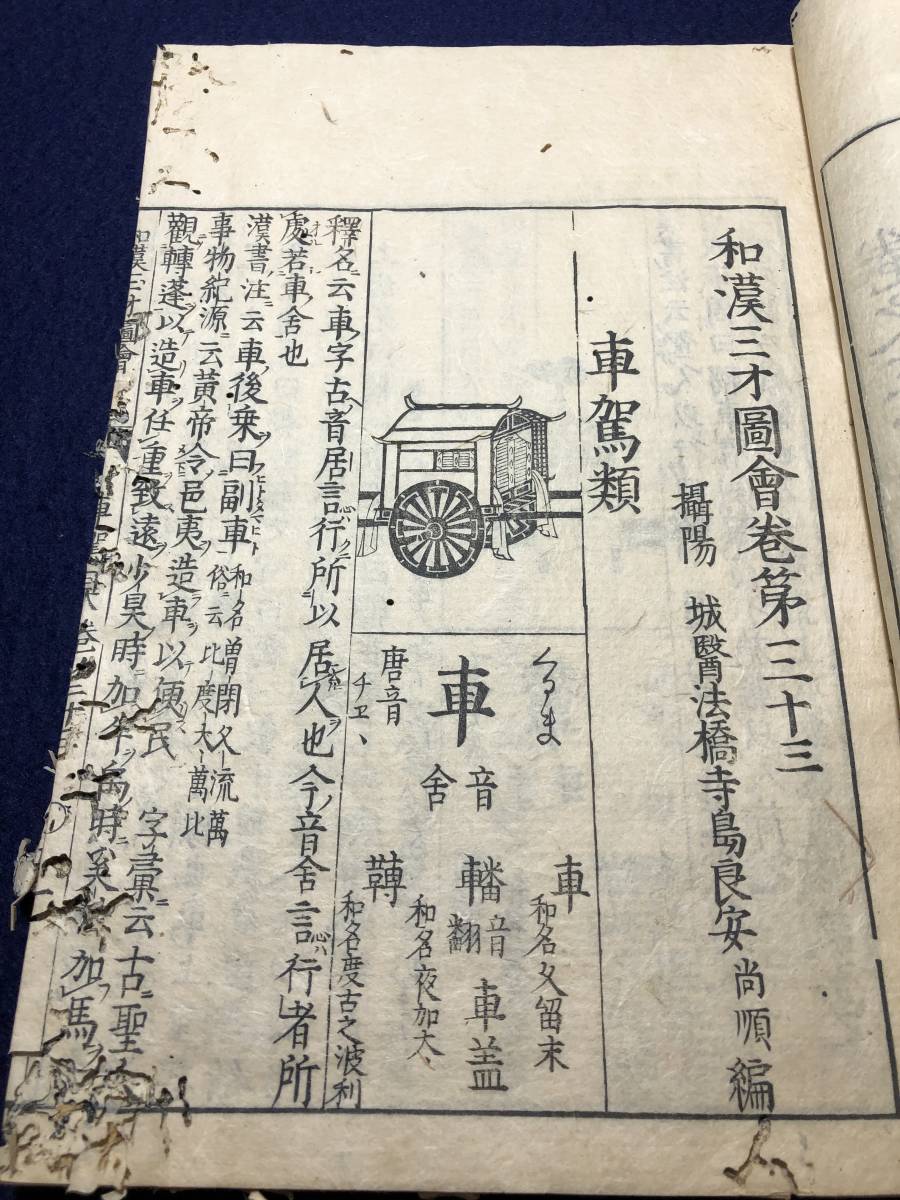 和漢三才圖會卷第三十三
攝陽 城醫法橋寺島良安尚順編
車駕類
くるま
車
音舍
唐音
チヱ、
車 和名久留末
轓 音翻 車盖 和名夜加太
和名度古之波利
釋名云車字古音居言行所以居人也今音舍言行者所
處若車舍也
漢書注云車後乗曰副車 和名曽閉久流萬 俗云比度太萬比
事物紀源云黄帝令邑夷造車以便民 字彙云古聖
觀轉蓬以造車任重致遠少昊時加牛禹時奚仲加馬
和漢三才圖會